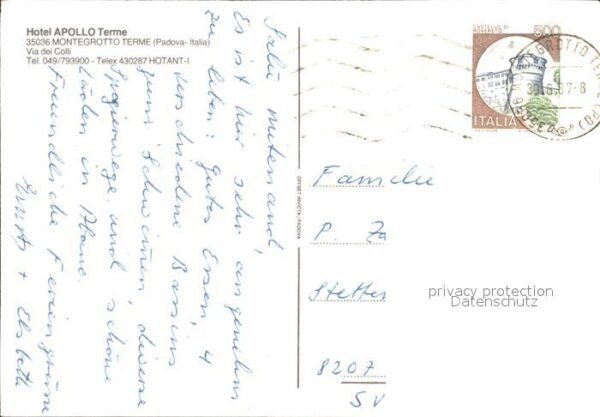 Hotel APOLLO Terme
35036 MONTEGROTTO TERME (Padova - Italia)
Via dei Colli
Tel. 049/793900 - Telex 430287 HOTANT-I
Salü mitenand,
Es ist hier sehr angenehm
zu leben: gutes Essen, 4
verschiedene Bassins
zum Schwimmen, diverse
Spazierwege und schöne
Läden in Abano.
Freundliche Feriengrüsse
Ernst + Elsbeth
OFFSET INVICTA / PADOVA
CASTELLO DI
ROVERETO
500
ITALIA
30.6.87-8
Familie
P. Za
Stetten
8207
SV
privacy protection
Datenschutz